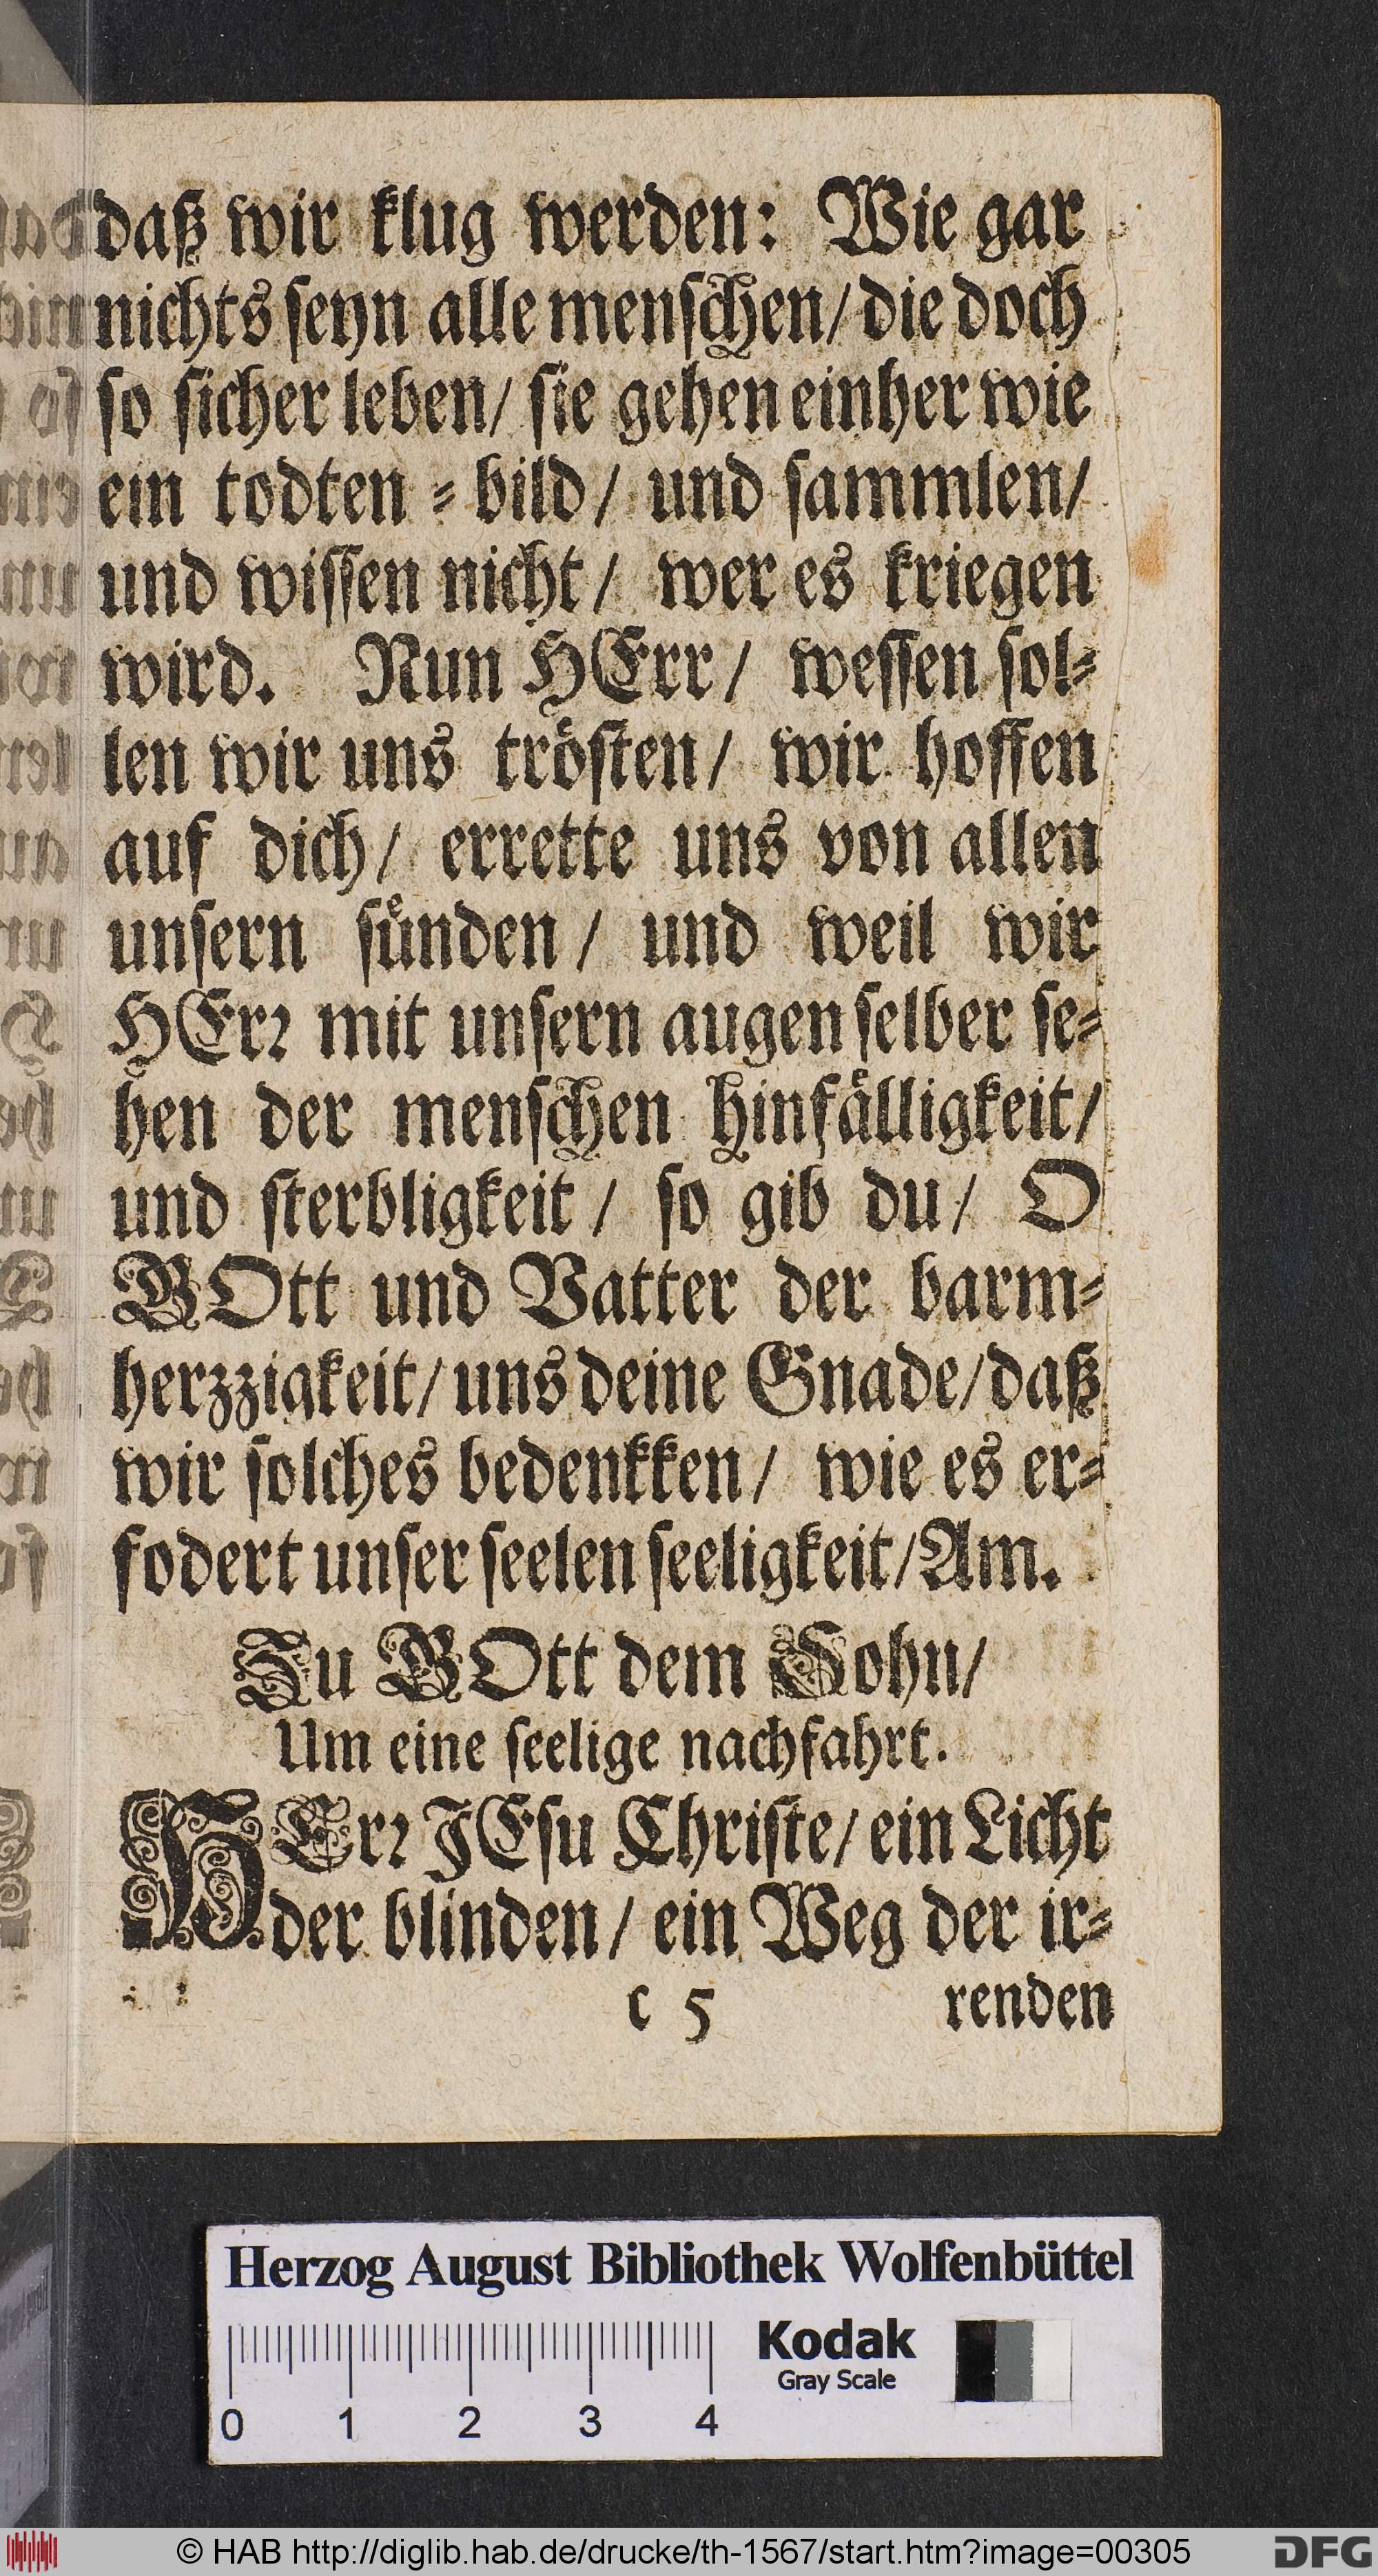 daß wir klug werden: Wie gar
nichts seyn alle menschen/ die doch
so sicher leben/ sie gehen einher wie
ein todten = bild/ und sammlen/
und wissen nicht/ wer es kriegen
wird. Nun HErr/ wessen sol=
len wir uns trösten/ wir hoffen
auf dich/ errette uns von allen
unsern sünden/ und weil wir
HErr mit unsern augen selber se=
hen der menschen hinfälligkeit/
und sterbligkeit/ so gib du/ O
GOtt und Vatter der barm=
herzzigkeit/ uns deine Gnade/ daß
wir solches bedenkken/ wie es er=
fodert unser seelen seeligkeit/ Am.
Zu GOtt dem Sohn/
Um eine seelige nachfahrt.
HErr JEsu Christe/ ein Licht
der blinden/ ein Weg der ir=
c 5 renden
Herzog August Bibliothek Wolfenbüttel
Kodak
Gray Scale
0 1 2 3 4
© HAB http://diglib.hab.de/drucke/th-1567/start.htm?image=00305
DFG